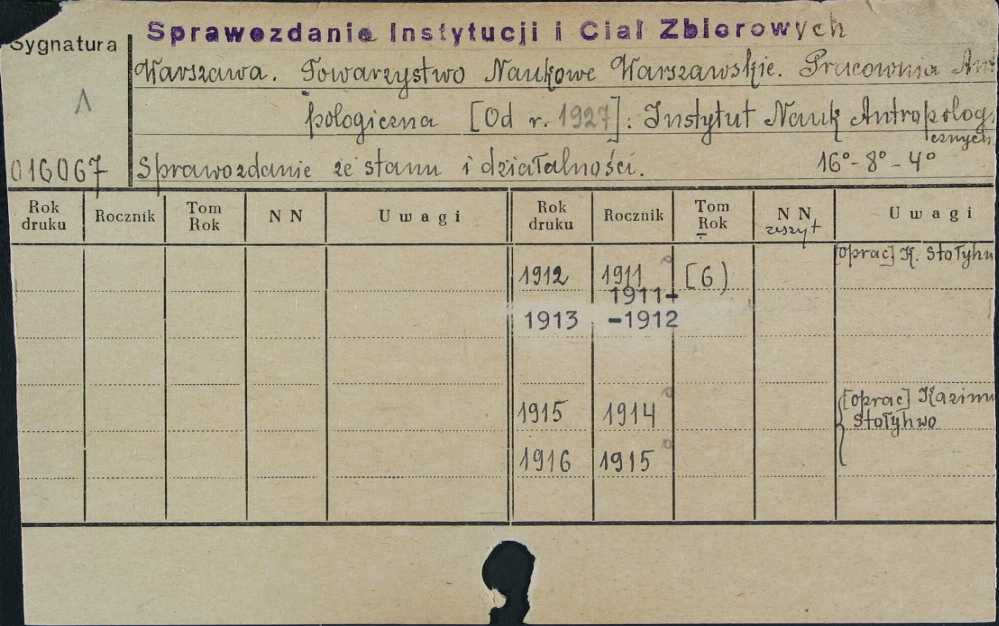 Sprawozdanie Instytucji i Ciał Zbiorowych
Sygnatura
Warszawa. Towarzystwo Naukowe Warszawskie. Pracownia An
pologiczna [Od r. 1927]: Instytut Nauk Antropolog.
cznych
016067 Sprawozdanie ze stanu i działalności. 16° - 8° - 4°
Rok druku Rocznik Tom Rok N N Uwagi Rok druku Rocznik Tom Rok N N zeszyt Uwagi
[oprac] K. Stołyhw
1912 1911 [6)
1911-
1913 -1912
[oprac] Kazim
1915 1914 Stołyhwo
1916 1915